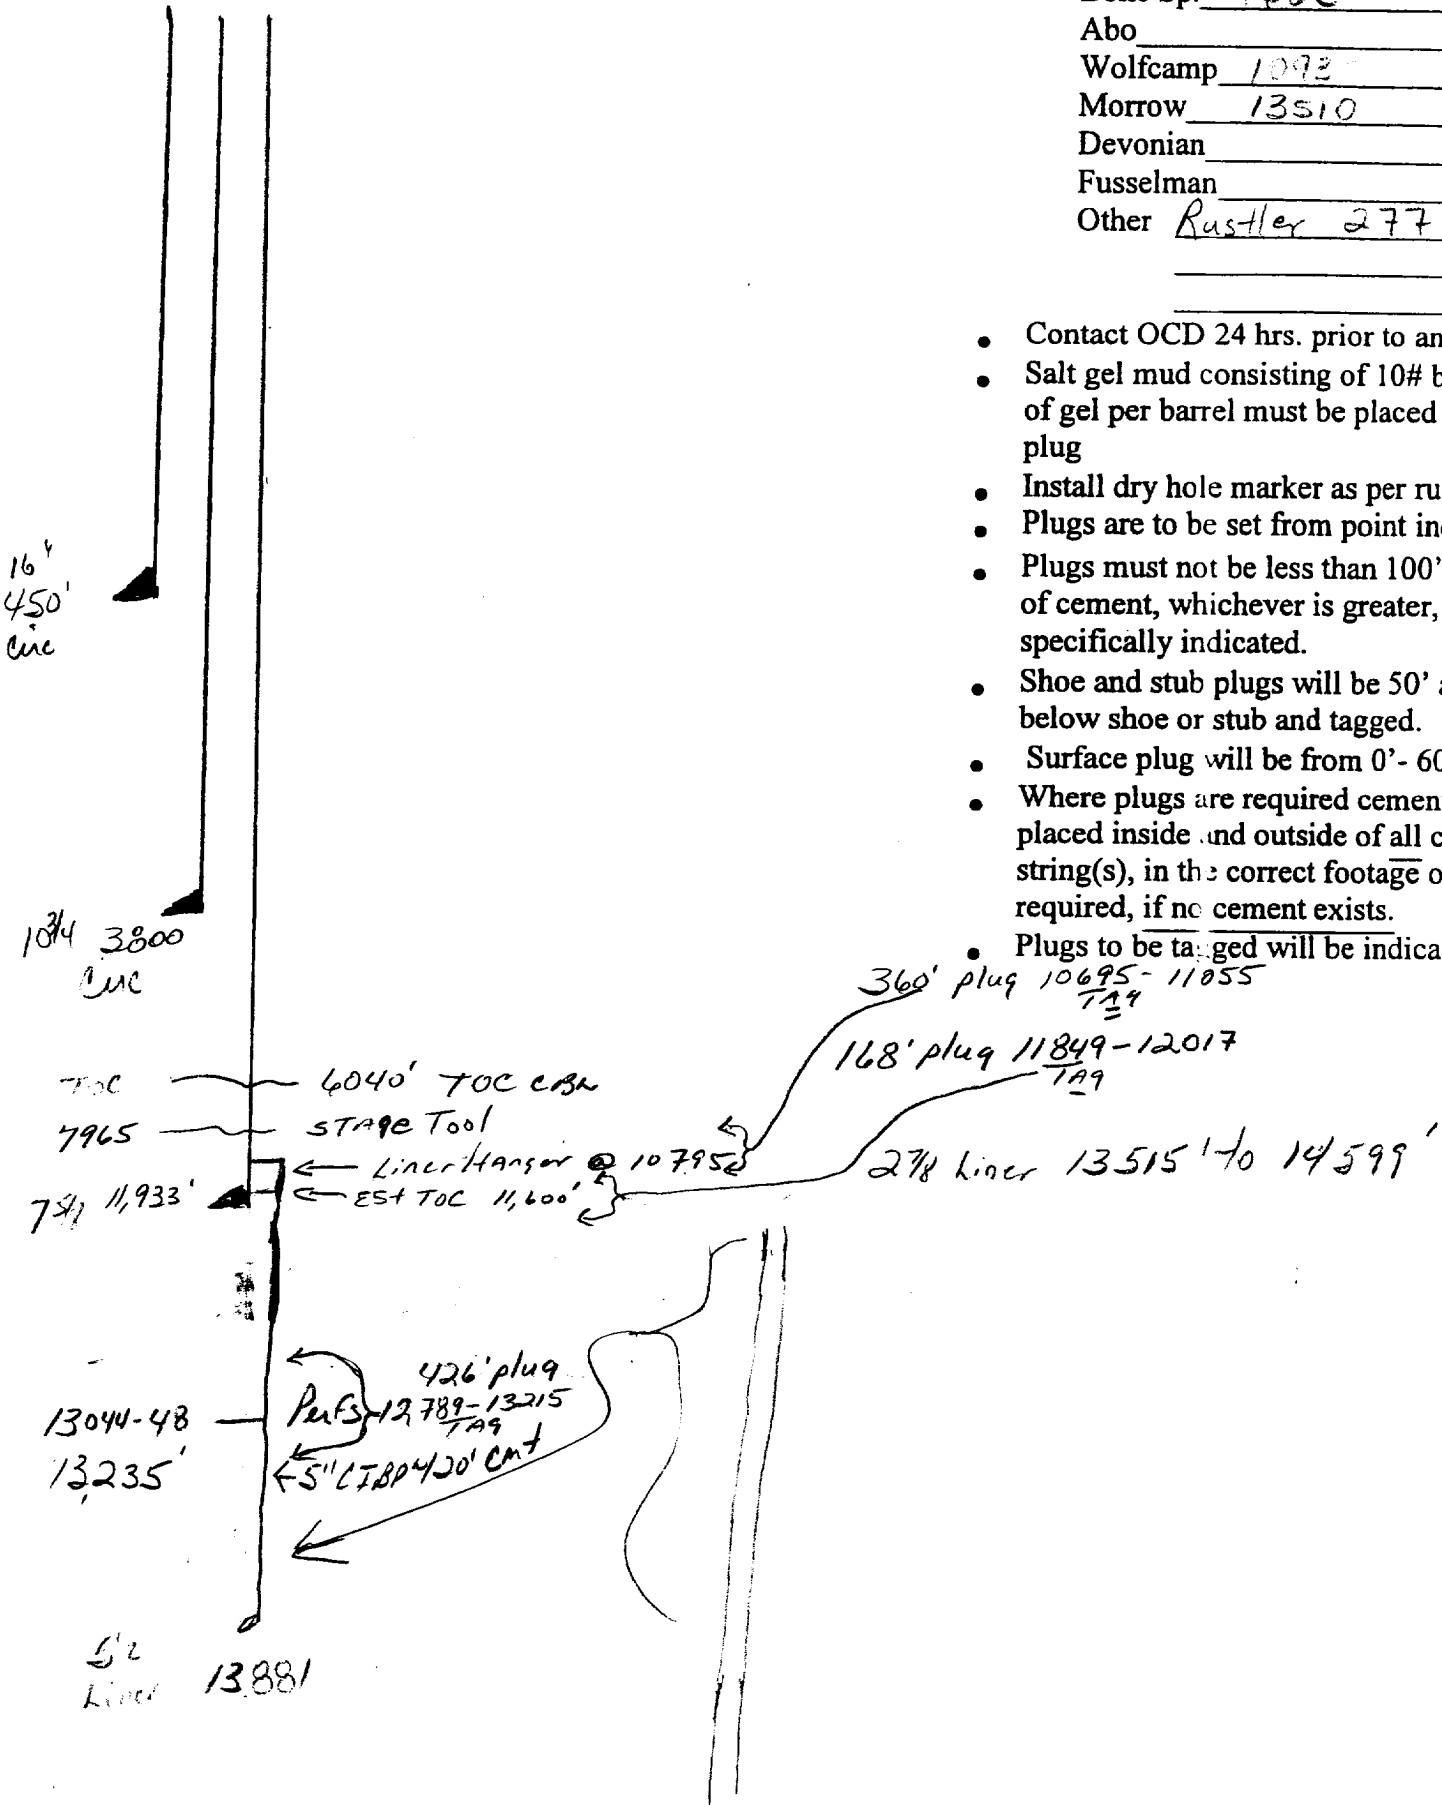 Abo
Wolfcamp 1093
Morrow 13510
Devonian
Fusselman
Other Rustler 277
• Contact OCD 24 hrs. prior to an
• Salt gel mud consisting of 10# b
of gel per barrel must be placed
plug
• Install dry hole marker as per ru
• Plugs are to be set from point in
• Plugs must not be less than 100'
of cement, whichever is greater,
specifically indicated.
• Shoe and stub plugs will be 50' a
below shoe or stub and tagged.
• Surface plug will be from 0'- 60
• Where plugs are required cemen
placed inside and outside of all c
string(s), in the correct footage o
required, if no cement exists.
• Plugs to be tagged will be indica
16"
450'
Circ
10 3/4 3800
Circ
360' plug 10695-11055
TAg
168' plug 11849-12017
TAg
TOC 6040' TOC CBL
7965 STAge Tool
Liner Hanger @ 10795
2 7/8 Liner 13515' to 14599'
7 5/8 11,933' Est TOC 11,600'
426' plug
13044-48 Perfs 12,789-13215
TAg
13,235' 5" CIBP w/20' Cmt
Liner 13881